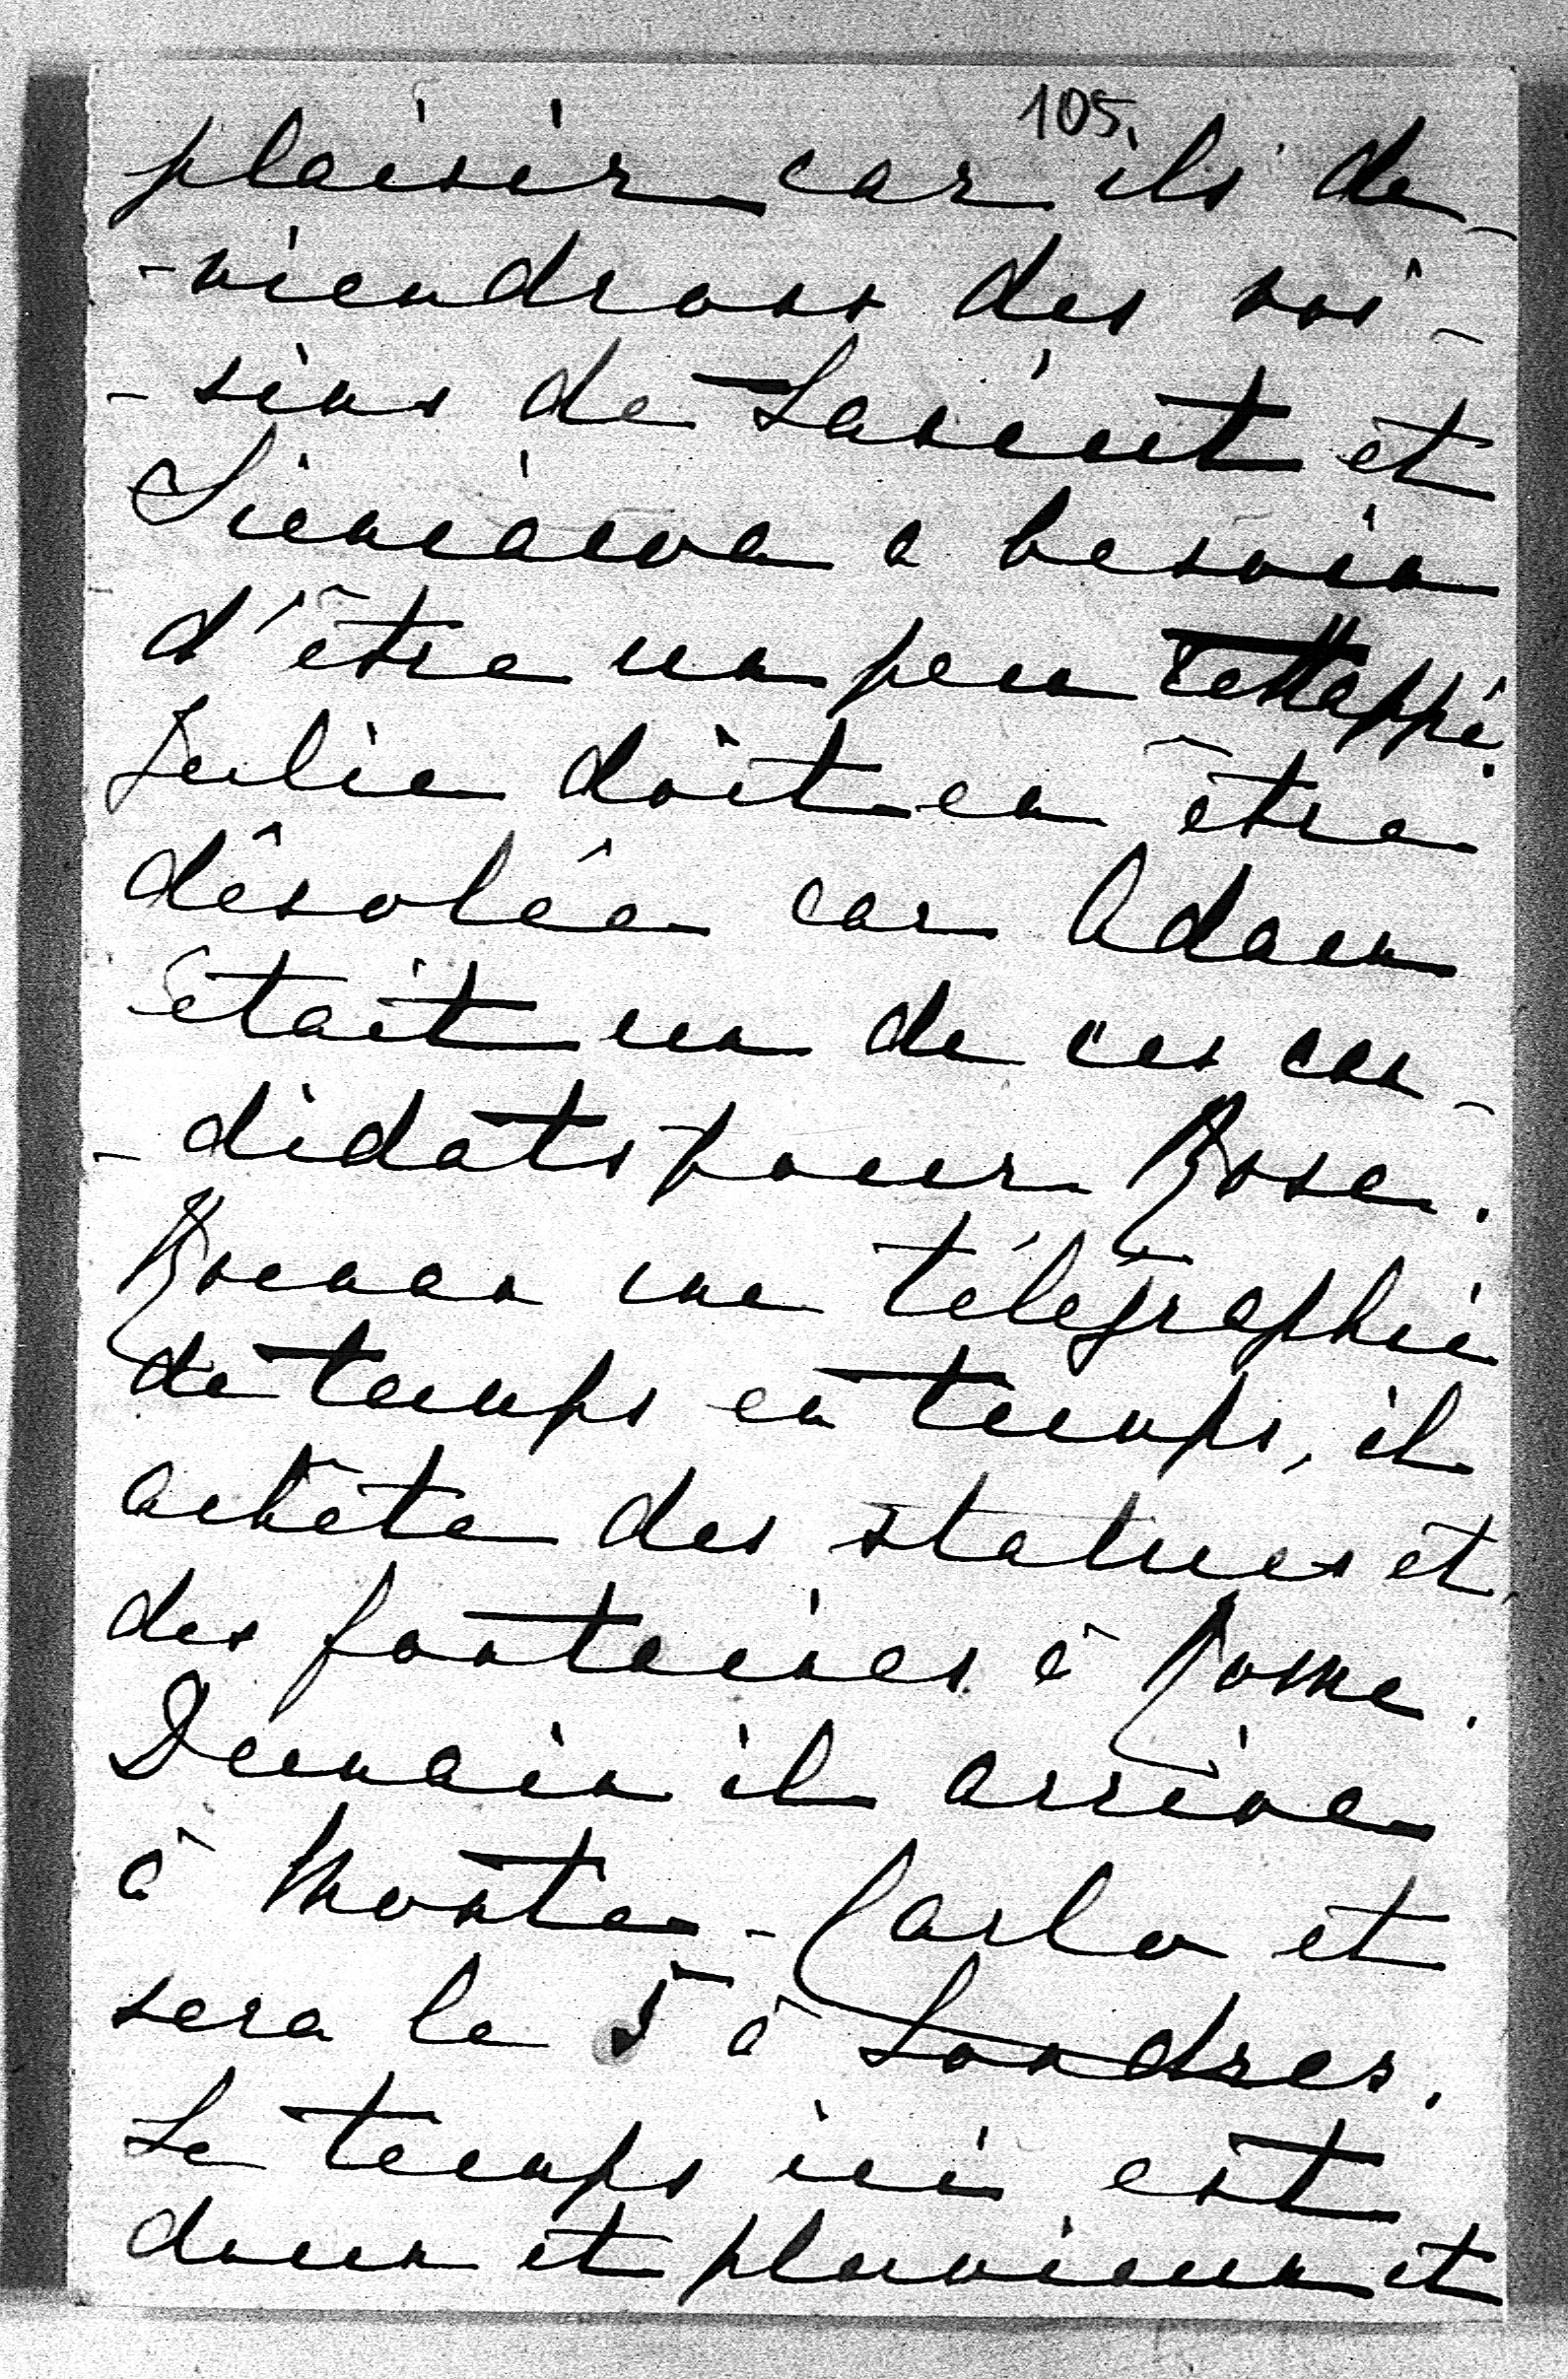 105.
plaisir car ils de-
-viendront des voi-
-sins de Lancut et
Sieniawa a besoin
d'être un peu rettappé.
Julie doit en être
désolée car Adam
était un de ces can-
-didats pour Rose.
Roman me télégraphie
de temps en temps, il
achète des statues et
des fontaines à Rome.
Demain il arrive
à Monte-Carlo et
sera le 5 à Londres.
Le temps ici est
doux et pluvieux et